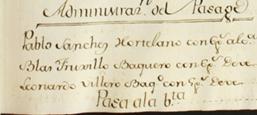 Administraz.n del Pasage
Pablo Sanchez Hortelano con Esp.a alca.
Blas Truxillo Baquero con Esp.a deve
Leonardo Villero Baq.o con Esp.a deve
Pasa ala b.ta